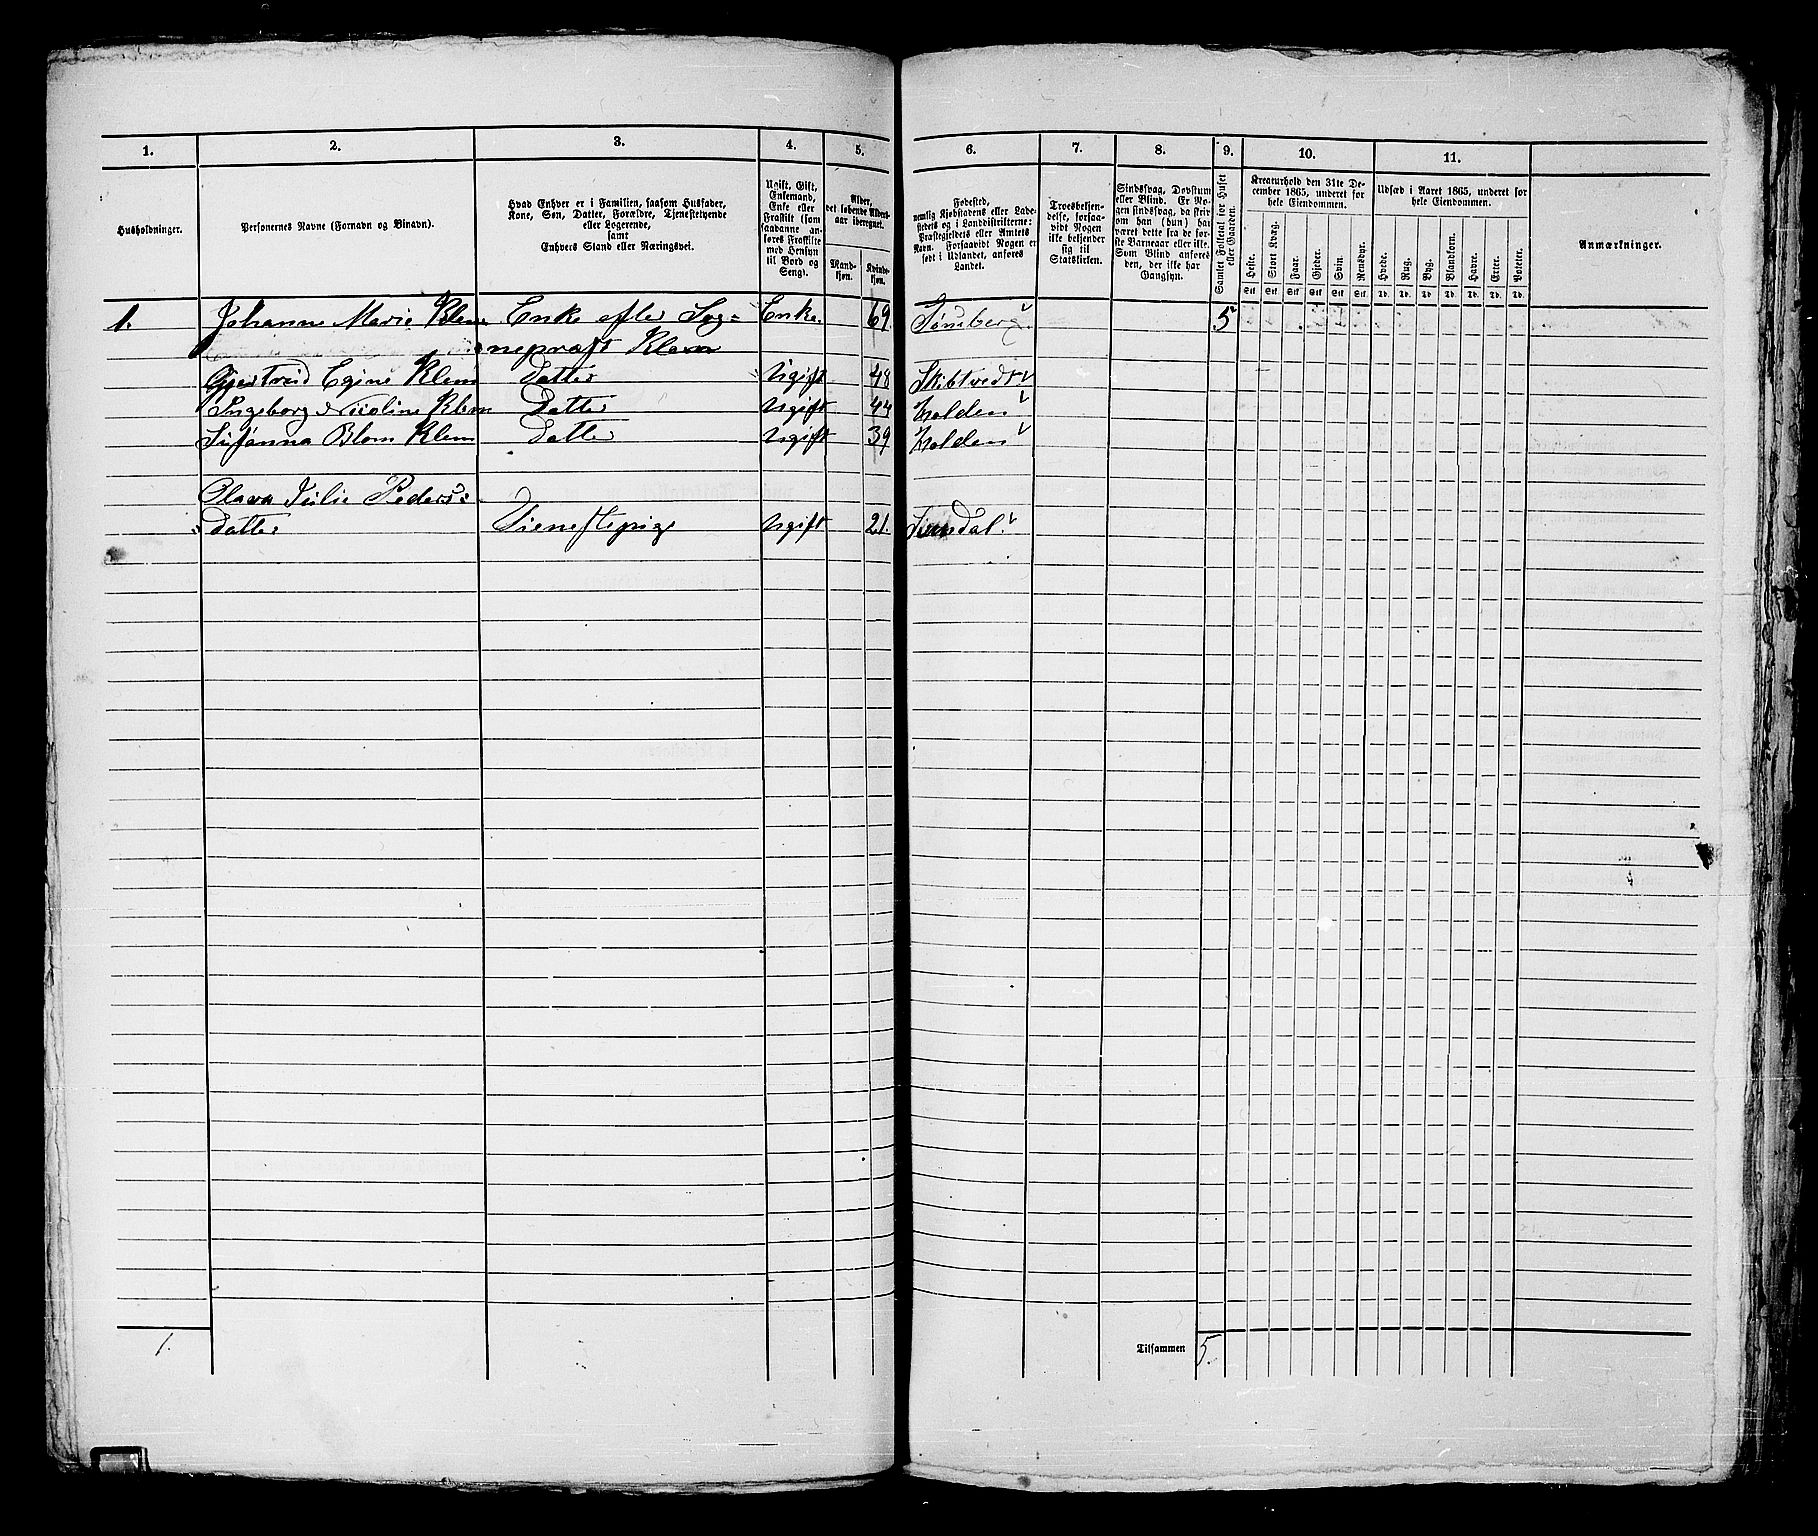 1. 2. 3. 4. 5. 6. 7. 8. 9. 10. 11.
Husholdninger.
Personernes Navne (Fornavn og Binavn).
Hvad Enhver er i Familien, saasom Husfader,
Kone, Søn, Datter, Forældre, Tjenestetyende
eller Logerende,
samt
Enhvers Stand eller Næringsvei.
Ugift, Gift,
Enkemand,
Enke eller
Fraskilt (som
saadanne an-
føres Fraskilte
med Hensyn
til Bord og
Seng).
Alder,
det løbende Alders-
aar iberegnet.
Mand-
kjøn.
Kvinde-
kjøn.
Fødested,
nemlig Kjøbstadens eller Lade-
stedets og i Landdistrikterne:
Præstegjeldets eller Amtets
Navn. Forsaavidt Nogen er
født i Udlandet, anføres
Landet.
Troesbekjen-
delse, forsaa-
vidt Nogen
ikke bekjender
sig til
Statskirken.
Sindssvag, Døvstum
eller Blind. Er No-
gen sindssvag, da skri-
om han (hun) har
været dette fra de før-
ste Barneaar eller ikke.
Som Blind anføres
den, der ikke har
Gangsyn.
Samlet Folketal for Huset
eller Gaarden.
Kreaturhold den 31te De-
cember 1865, underet for
hele Eiendommen.
Heste. Stort Kvæg. Faar. Gjeder. Svin. Rensdyr.
Stk. Stk. Stk. Stk. Stk. Stk.
Udsæd i Aaret 1865, underet for
hele Eiendommen.
Hvede. Rug. Byg. Blandkorn. Havre. Erter. Poteter.
Td. Td. Td. Td. Td. Td. Td.
Anmærkninger.
1. Johanne Marie Klem Enke efter Sog= Enke. 69. Tønsberg 5
nepræst Klem
Gjertrud Egine Klem Datter Ugift 48 Skibtvedt
Ingeborg Nicoline Klem Datter Ugift 44 Holden
Susanna Blom Klem Datter Ugift 39 Holden
Olava Julie Peders=
datter Tienestepige Ugift 21.
1. Tilsammen 5.